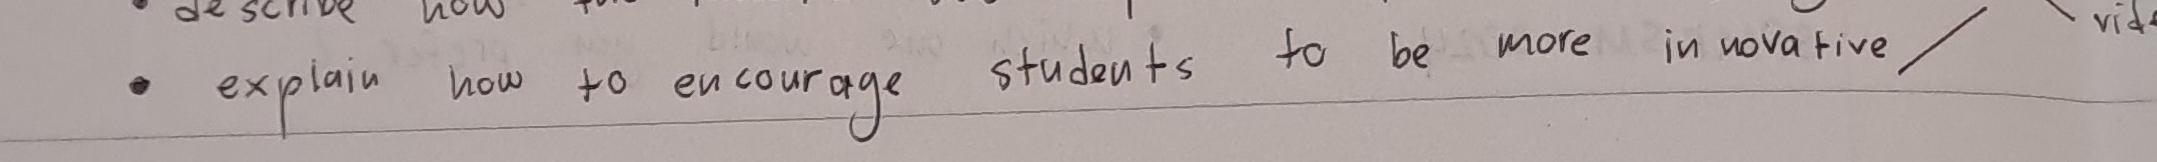 • describe how
• explain how to encourage students to be more innovative /